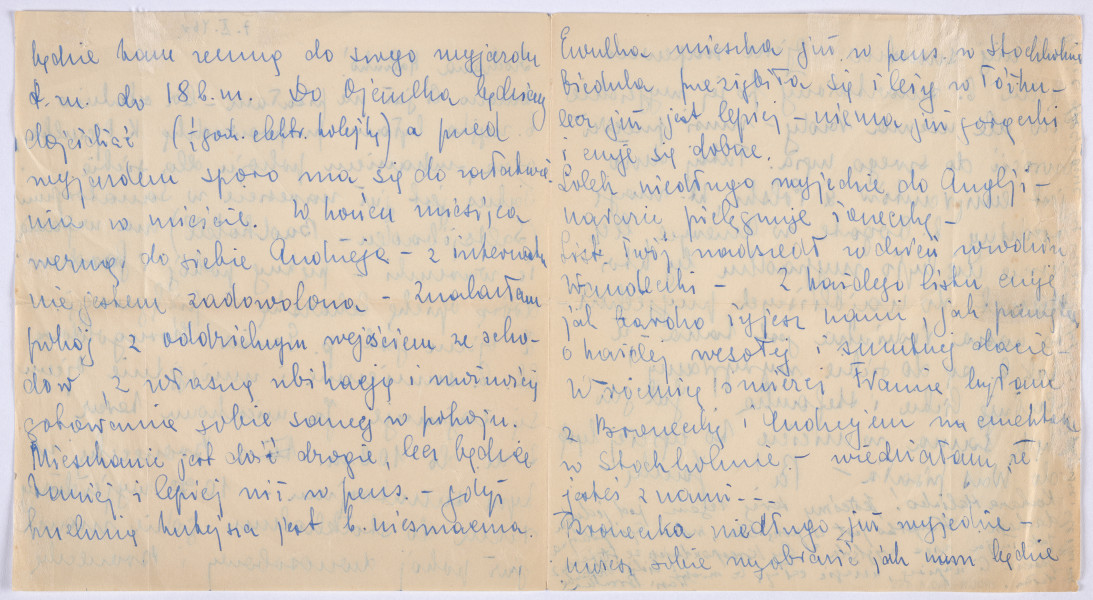 będzie ze mną do swego wyjazdu
t.m. do 18 b.m. Do Ojčulka będziemy
dojeżdżać (1/2 godz. elektr. kolejką) a przed
wyjazdem sporo ma się do załatwie
nia w mieście. W końcu miesiąca
wezmę do siebie Andrzeja – z internatu
nie jestem zadowolona – Znalazłam
pokój z oddzielnym wejściem ze scho-
dów z własną ubikacją i możnością
gotowania sobie samej w pokoju.
Mieszkanie jest dość drogie, lecz będzie
taniej i lepiej niż w pens. – gdyż
kuchnia tutejsza jest b. niesmaczna.
Ewulka mieszka już w pens. w Stockholmie
Biedula przeziębiła się i leży w łóżku –
lecz już jest lepiej – niema już gorączki
i czuje się dobrze.
Lolek niedługo wyjedzie do Anglji –
narazie pielęgnuje żoneczkę –
List Twój nadszedł w dzień urodzin
Wandeczki – Z każdego listu czuję
jak bardzo żyjesz nami jak pamiętasz
o każdej wesołej i smutnej dacie –
W rocznicę śmierci Wani byłam
z Broneczką i Andrzejem na cmentarzu
w Stockholmie – wiedziałam, że
jesteś z nami – – –
Broneczka niedługo już wyjedzie –
możesz sobie wyobrazić jak nam będzie